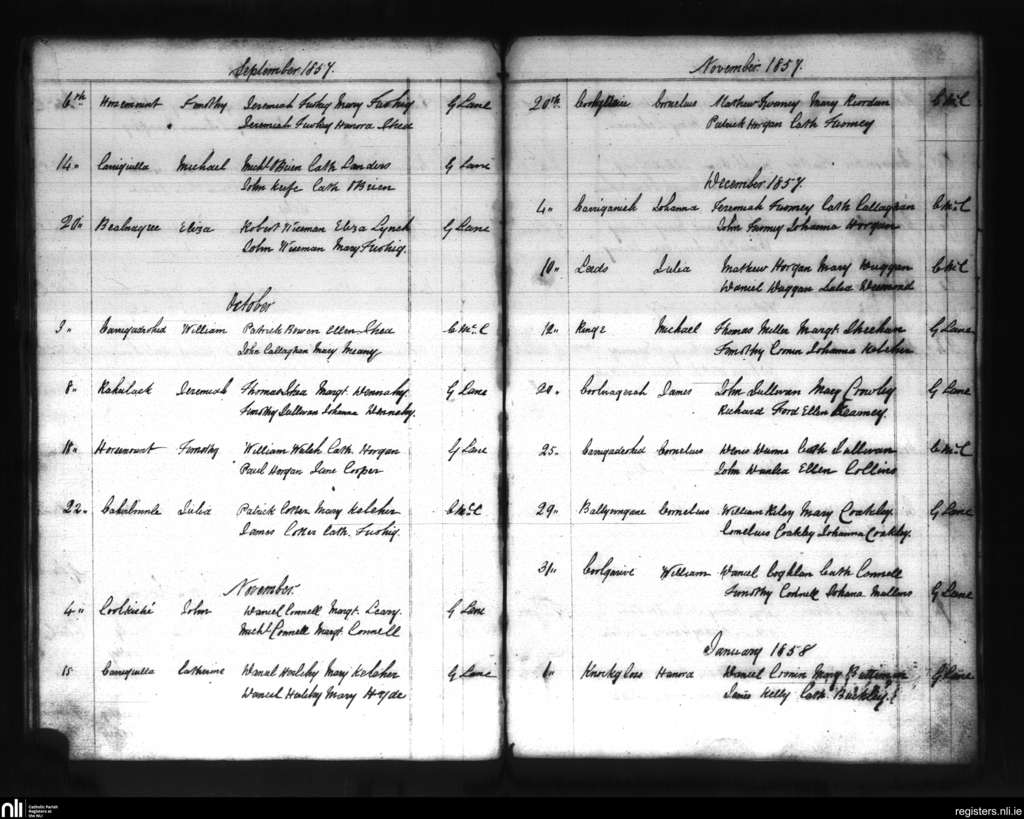 September 1857.
6th Horsemount Timothy Jeremiah Mary Twohig G Lane
Jeremiah Twohig Hanora Shea
14" Carriguilla Michael Michl OBrien Cath Landers G Lane
John Keefe Cath OBrien
20" Bealnagree Eliza Robert Wiseman Eliza Lynch G Lane
John Wiseman Mary Twohig.
October
3" Carrigadrohid William Patrick Bowen Ellen Shea C McC
John Callaghan Mary Meany
8" Jeremiah Thomas Shea Margt. Dennehy G Lane
Timothy Sullivan Johanna Dennehy.
18" Horsemount Timothy William Walsh Cath. Horgan G Lane
Paul Horgan Jane Cooper
22" Julia Patrick Cotter Mary Keleher C McC.
James Cotter Cath. Twohig.
November.
4" John Daniel Connell Margt. Leary. G Lane
Michl Connell Margt. Connell
15 Carriguilla Catherine Daniel Mary Keleher G Lane
Daniel Mary
November 1857.
20th Cornelius Mathew Twomey Mary Riordan C McC
Patrick Horgan Cath Twomey
December 1857.
4" Johanna Jeremiah Twomey Cath Callaghan C McC
John Twomey Johanna Horgan
10" Leeds Julia Mathew Horgan Mary Duggan C McC
Daniel Duggan Desmond
12" Michael Thomas Miller Margt Sheehan G Lane
Timothy Cronin Johanna Keleher
20" Coolnagerah James John Sullivan Mary Crowley G Lane
Richard Ford Ellen Kearney.
25" Carrigadrohid Cornelius Cath Sullivan C McC
John Ellen Collins
29" Cornelius William Kiley Mary Coakley G Lane
Cornelius Coakley Johanna Coakley.
31" Coolgarive William Daniel Coghlan Cath Connell
Timothy Connell Johana Mullens G Lane
January 1858
6" Hanora Daniel Cronin Mary G Lane
James Kelly Cath. Buckley.
nli
Catholic Parish
Registers at
the NLI
registers.nli.ie